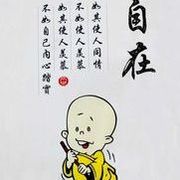 自在
如其使人同情
不如使人羡慕
如其使人羡慕
不如自己内心踏實